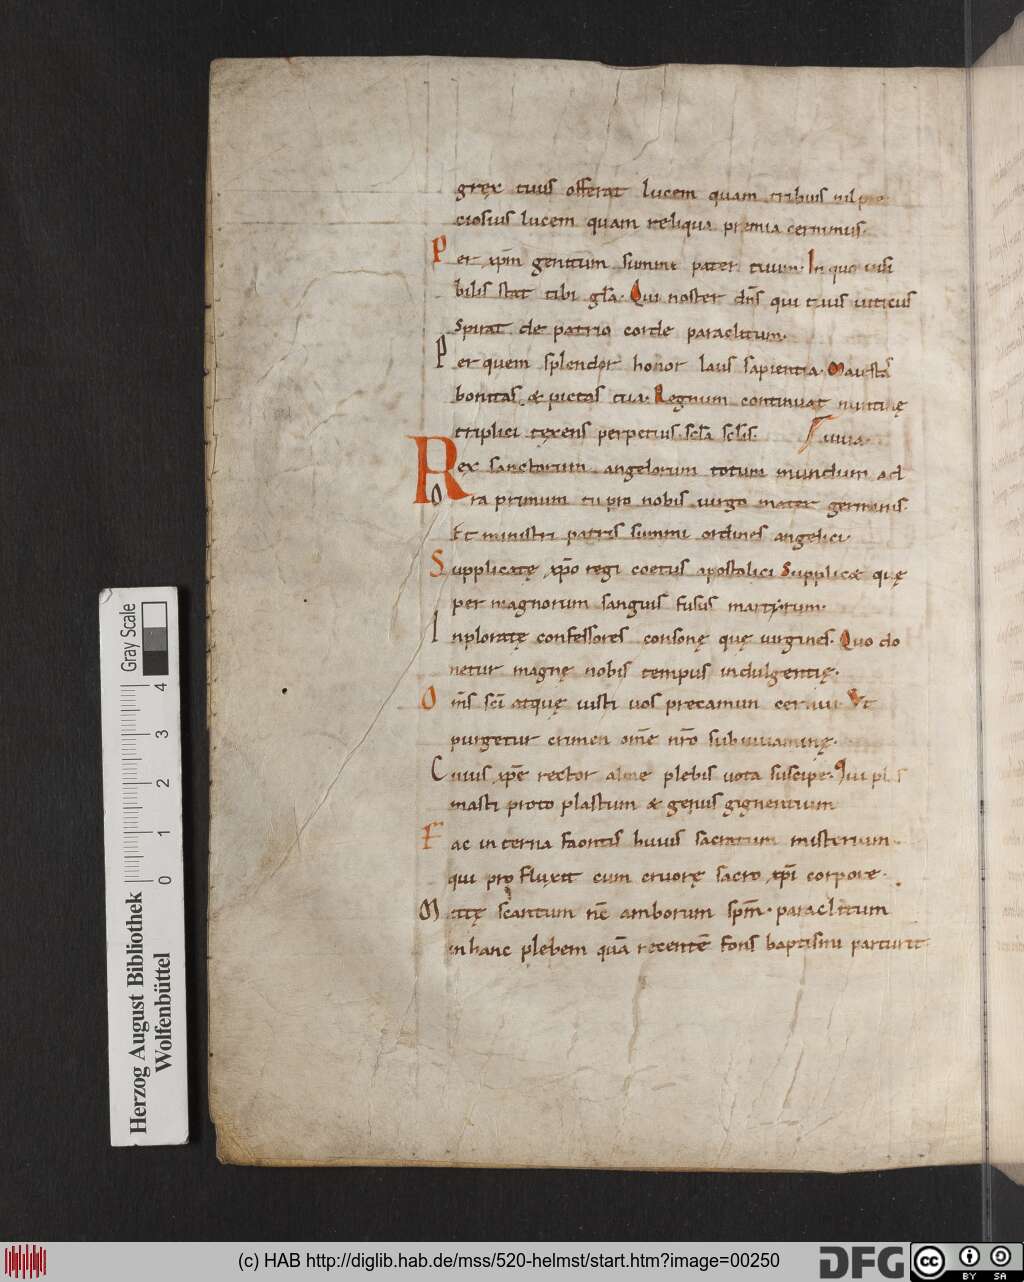 gręx tuus offerat lucem quam tribuis nil pre
ciosius lucem quam reliqua premia cernimus.
Per xpm̄ genitum summe pater tuum. In quo visi
bilis stat tibi glā. Qui noster dn̄s qui tuus uticus
spirat de patrio corde paraclitum.
Per quem splendor honor laus sapientia. Maiestas
bonitas & pietas tua. Regnum continuat numinę
triplici tęxens perpetius sclā sclis.
Rex sanctorum angelorum totum mundum ad
Ora primum tu pro nobis uirgo mater germinis.
Et ministri patris summi ordines angelici.
Supplicatę xpō regi coetus apostolici Supplic& quę
per magnorum sanguis fusus martyrum.
Inploratę confessores consonę quę uirgines. Quo do
netur magnę nobis tempus indulgentię.
Om̄s sc̄i atquę iusti uos precamur cernui Ut
purgetur crimen om̄e nr̄o sub
Cuius xpē rector alme plebis uota suscipe. Qui plas
masti proto plastum & genus gignentium
Fac interna fontis huius sacratum misterium.
qui pro fluxit cum cruorę sacro xpi corpore.
Mittę scantum nc̄ amborum spm̄. paraclitum
in hanc plebem quā recentē fons baptismi parturit
Gray Scale
4
3
2
1
0
Herzog August Bibliothek
Wolfenbüttel
(c) HAB http://diglib.hab.de/mss/520-helmst/start.htm?image=00250
DFG
cc
BY SA